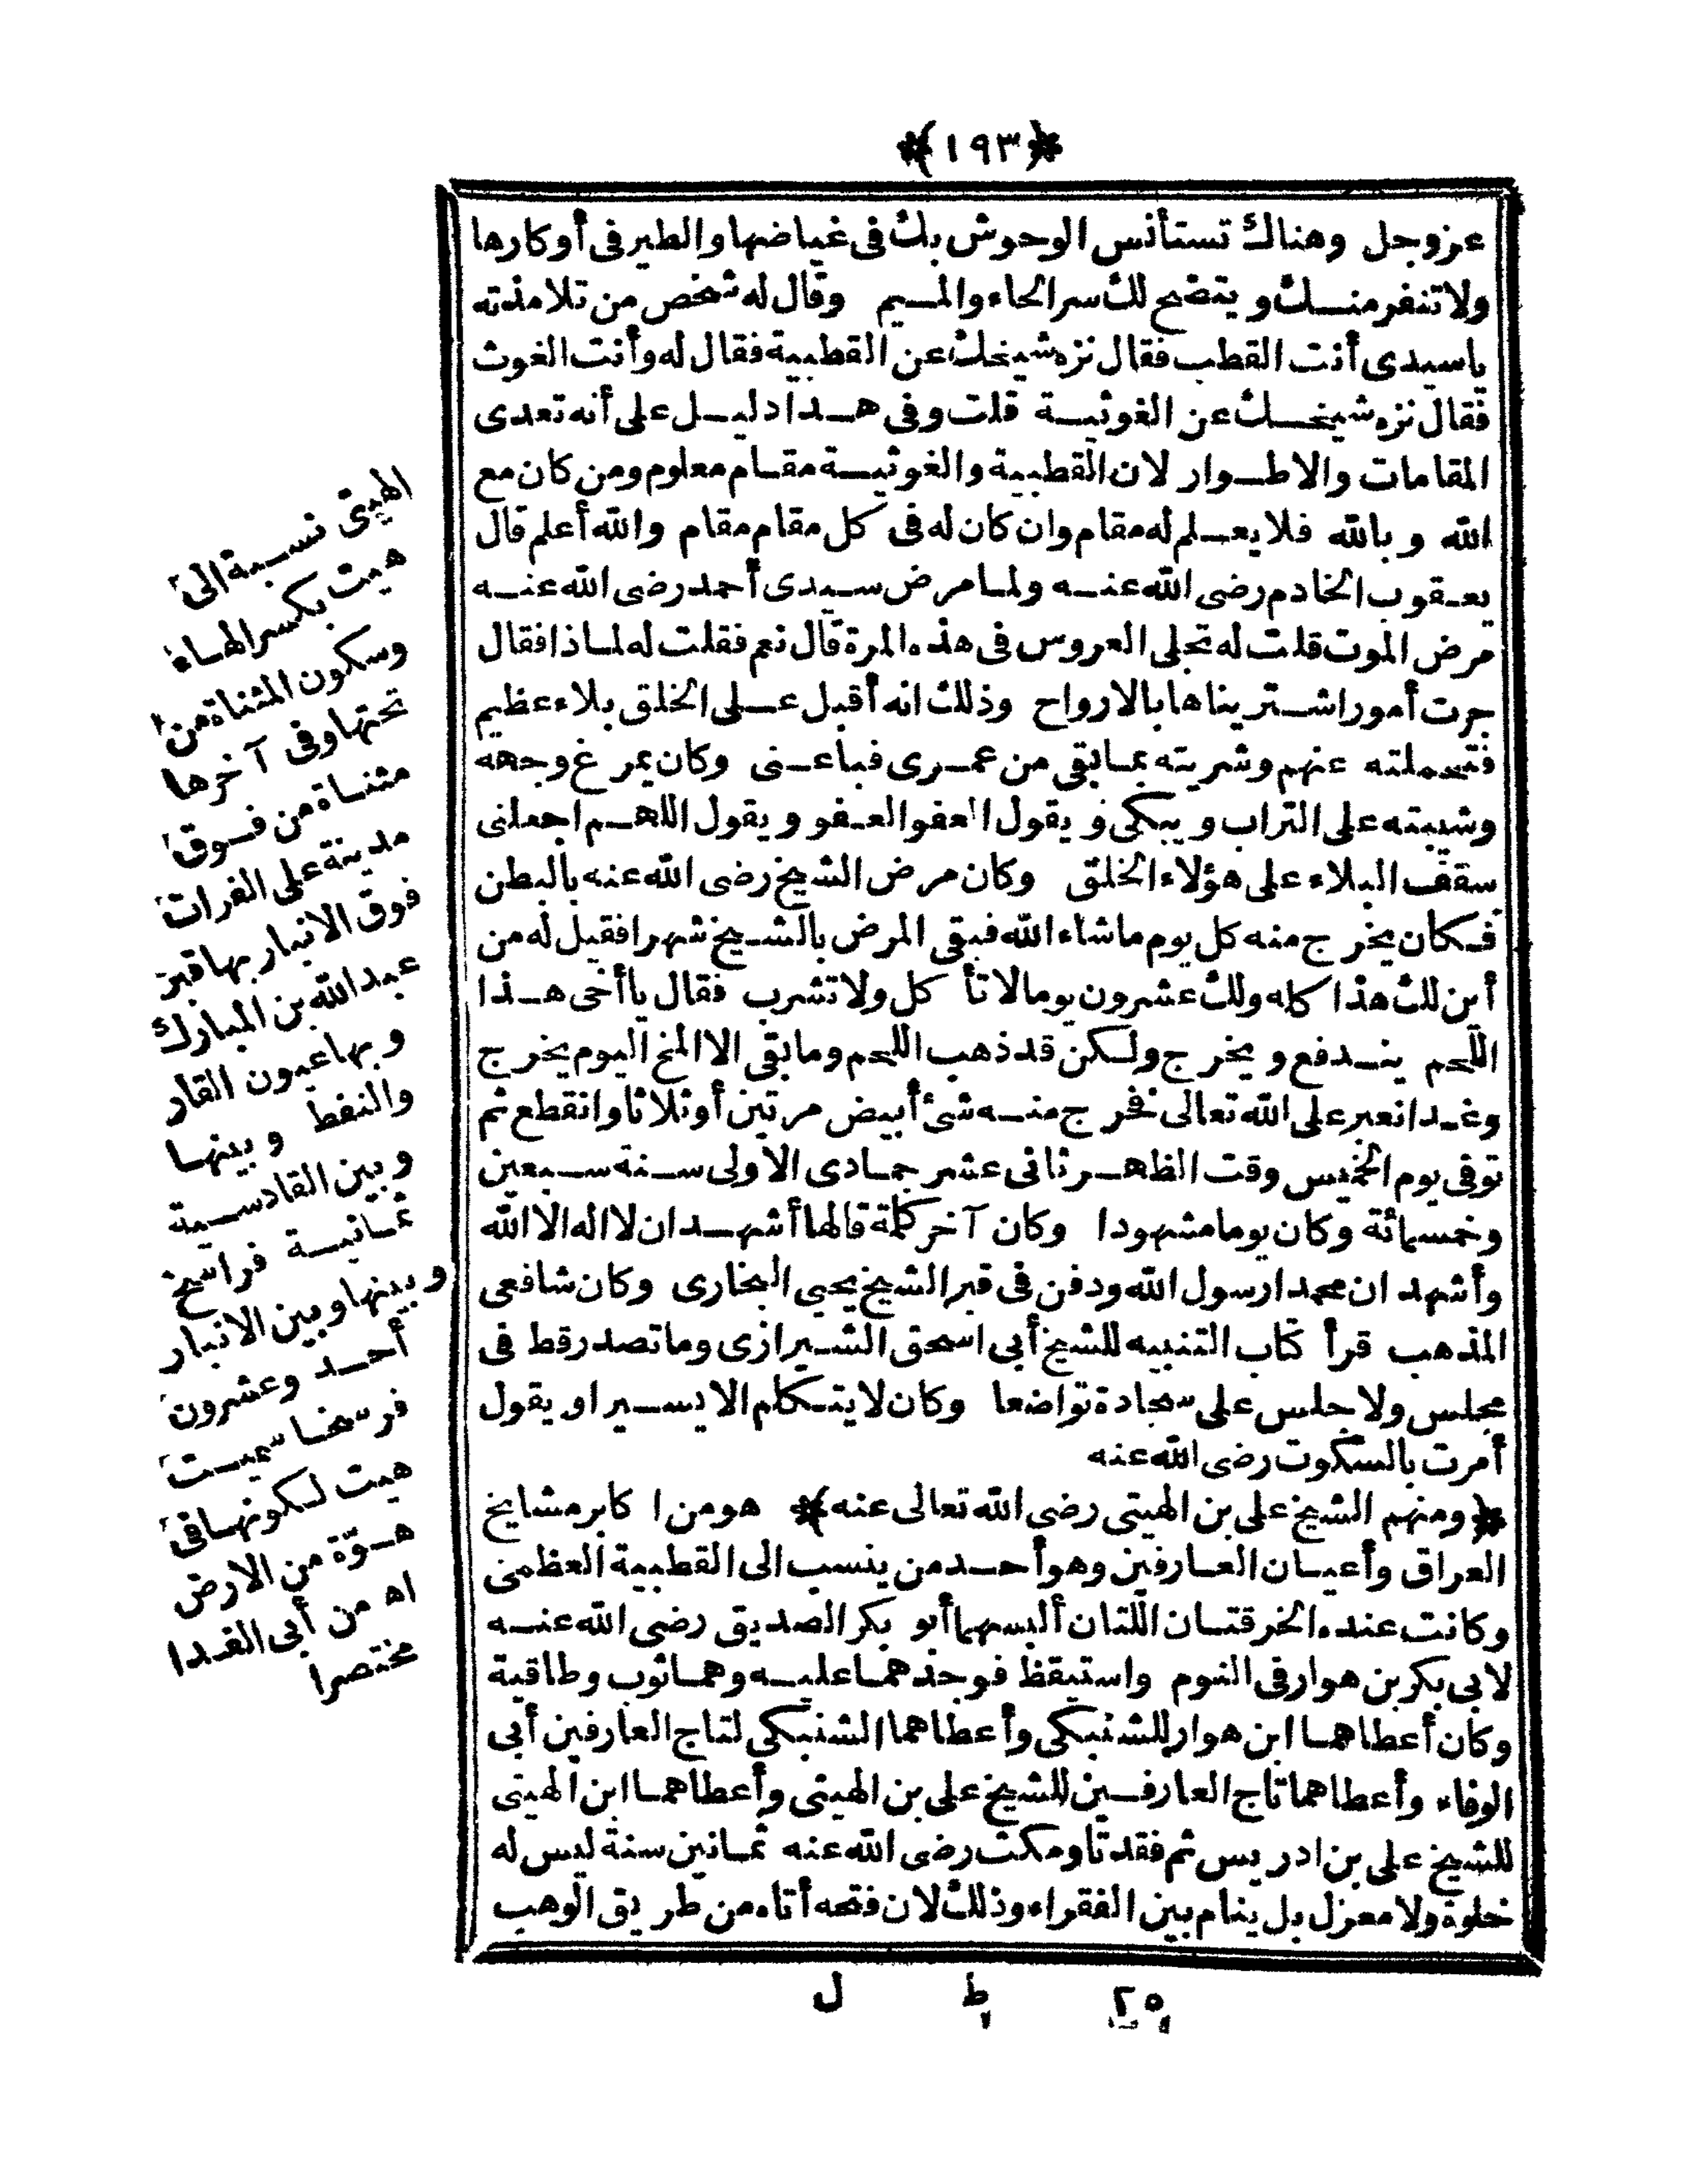 ﴿١٩٣﴾
عزوجل وهناك تستأنس الوحوش بك فى غياضها والطير فى أوكارها
ولا تنفر منك ويتضح لك سر الحاء والميم وقال له شخص من تلامذته
ياسيدى أنت القطب فقال نزه شيخك عن القطبية فقال له وأنت الغوث
فقال نزه شيخك عن الغوثية قلت وفى هذا دليل على أنه تعدى
المقامات والاطوار لان القطبية والغوثية مقام معلوم ومن كان مع
الله وبالله فلا يعلم له مقام وان كان له فى كل مقام مقام والله أعلم قال
يعقوب الخادم رضى الله عنه ولما مرض سيدى أحمد رضى الله عنه
مرض الموت قلت له تجلى العروس فى هذه المرة قال نعم فقلت له لماذا فقال
جرت أمور اشتريناها بالارواح وذلك انه أقبل على الخلق بلاء عظيم
فتحملته عنهم وشريته بمابقى من عمرى فباعنى وكان يمرغ وجهه
وشيبته على التراب ويبكى ويقول العفو العفو ويقول اللهم اجعلنى
سقف البلاء على هؤلاء الخلق وكان مرض الشيخ رضى الله عنه بالبطن
فكان يخرج منه كل يوم ماشاء الله فبقى المرض بالشيخ شهرا فقيل له من
أين لك هذا كله ولك عشرون يوما لا تأكل ولا تشرب فقال يا أخى هذا
اللحم يندفع ويخرج ولكن قد ذهب اللحم وما بقى الا المخ اليوم يخرج
وغدا نعبر على الله تعالى فخرج منه شئ أبيض مرتين أوثلاثا وانقطع ثم
توفى يوم الخميس وقت الظهر ثانى عشر جمادى الاولى سنة سبعين
وخمسمائة وكان يوما مشهودا وكان آخر كلمة قالها أشهد ان لا اله الا الله
وأشهد ان محمدا رسول الله ودفن فى قبر الشيخ يحيى البخارى وكان شافعى
المذهب قرأ كتاب التنبيه للشيخ أبى اسحق الشيرازى وما تصدر قط فى
مجلس ولا جلس على سجادة تواضعا وكان لا يتكلم الا يسيرا ويقول
أمرت بالسكوت رضى الله عنه
﴿ومنهم الشيخ على بن الهيتى رضى الله تعالى عنه﴾ هو من اكابر مشايخ
العراق وأعيان العارفين وهو أحد من ينسب الى القطبية العظمى
وكانت عنده الخرقتان اللتان ألبسهما أبو بكر الصديق رضى الله عنه
لابى بكر بن هوار فى النوم واستيقظ فوجدهما عليه وهما ثوب وطاقية
وكان أعطاهما ابن هوار للشنبكى وأعطاهما الشنبكى لتاج العارفين أبى
الوفاء وأعطاهما تاج العارفين للشيخ على بن الهيتى وأعطاهما ابن الهيتى
للشيخ على بن ادريس ثم فقدتا ومكث رضى الله عنه ثمانين سنة ليس له
خلوة ولا معزل بل ينام بين الفقراء وذلك لان فتحه أتاه من طريق الوهب
الهيتى نسبة الى
هيت بكسر الهاء
وسكون المثناة من
تحتها وفى آخرها
مثناة من فوق
مدينة على الفرات
فوق الانبار بها قبر
عبد الله بن المبارك
وبها عيون القار
والنفط وبينها
وبين القادسية
ثمانية فراسخ
وبينها وبين الانبار
أحد وعشرون
فرسخا سميت
هيت لكونها فى
هوّة من الارض
اه من أبى الفدا
مختصرا
٢٥ ط ل